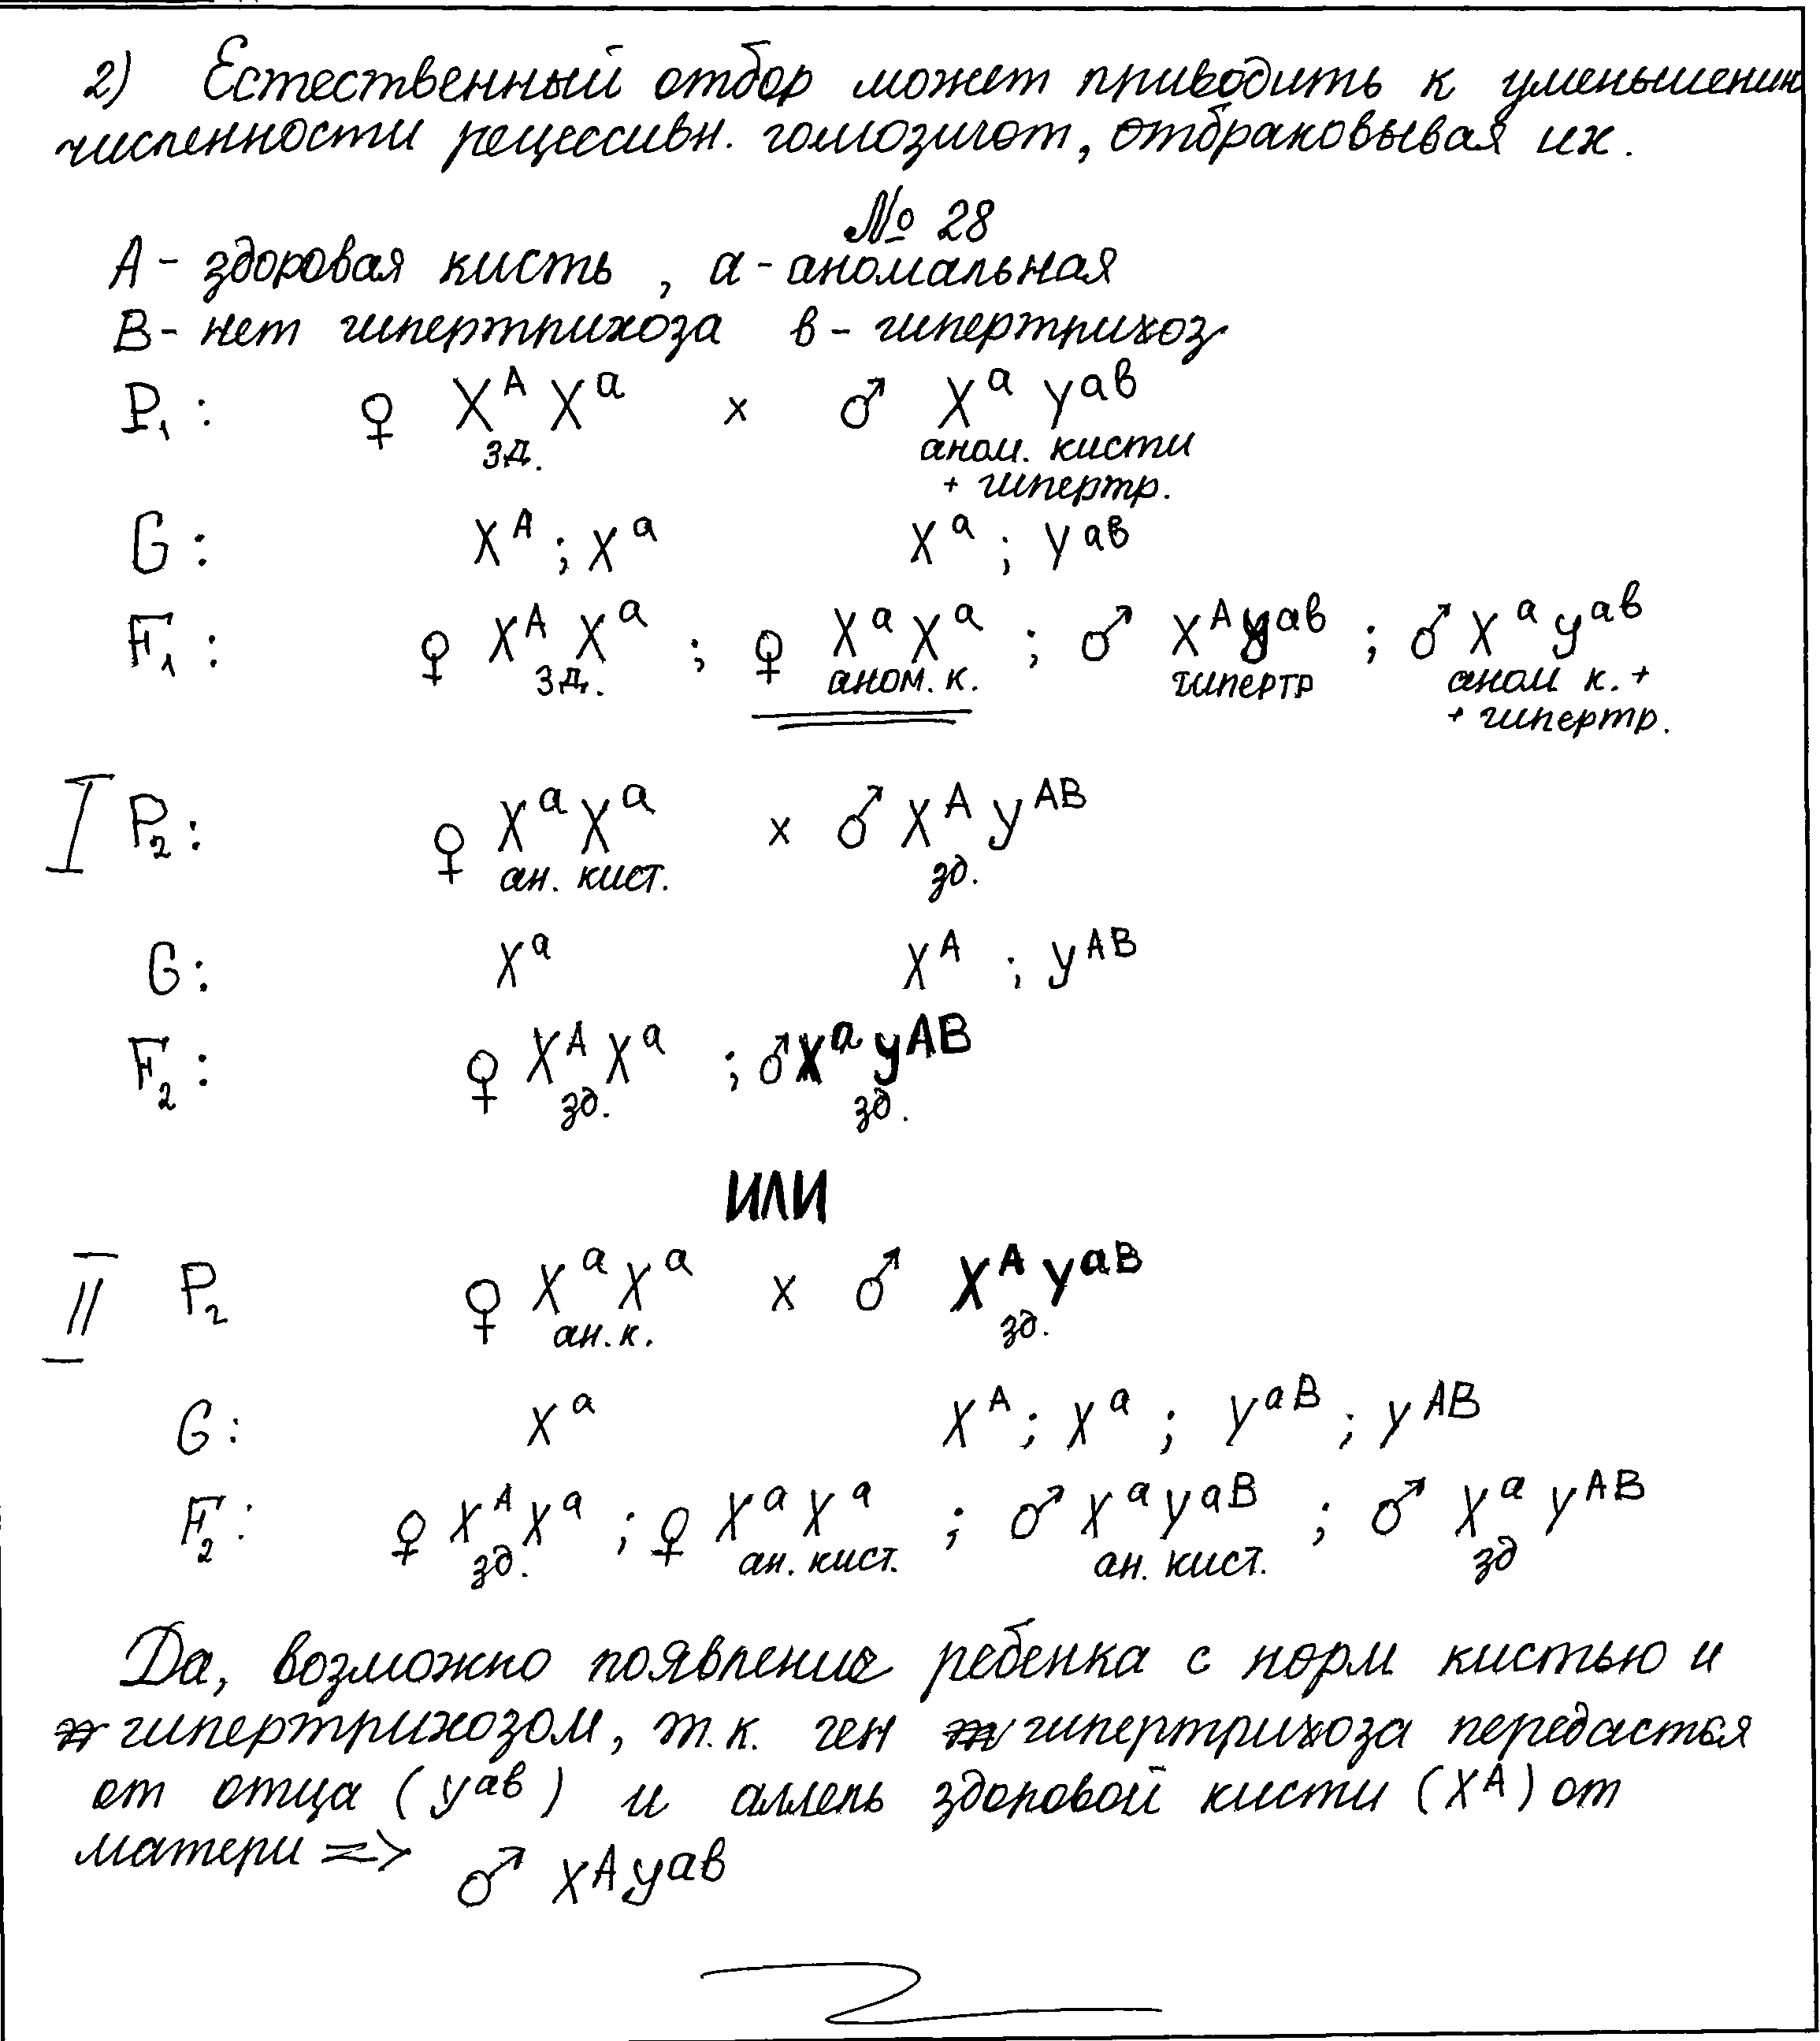 2) Естественный отбор может приводить к уменьшению
численности рецессивн. гомозигот, отбраковывая их.
№ 28
A - здоровая кисть , a - аномальная
B - нет гипертрихоза в - гипертрихоз
P₁ : ♀ Xᴬ Xᵃ x ♂ Xᵃ Yᵃᵇ
зд. аном. кисти
+ гипертр.
G : Xᴬ ; Xᵃ Xᵃ ; Yᵃᵇ
F₁ : ♀ Xᴬ Xᵃ ; ♀ Xᵃ Xᵃ ; ♂ Xᴬ Yᵃᵇ ; ♂ Xᵃ Yᵃᵇ
зд. аном. к. гипертр аном к. +
+ гипертр.
I P₂ : ♀ Xᵃ Xᵃ x ♂ Xᴬ Yᴬᴮ
ан. кист. зд.
G : Xᵃ Xᴬ ; Yᴬᴮ
F₂ : ♀ Xᴬ Xᵃ ; ♂ Xᵃ Yᴬᴮ
зд. зд.
ИЛИ
II P₂ ♀ Xᵃ Xᵃ x ♂ Xᴬ Yᵃᴮ
ан. к. зд.
G : Xᵃ Xᴬ ; Xᵃ ; Yᵃᴮ ; Yᴬᴮ
F₂ : ♀ Xᴬ Xᵃ ; ♀ Xᵃ Xᵃ ; ♂ Xᵃ Yᵃᴮ ; ♂ Xᵃ Yᴬᴮ
зд. ан. кист. ан. кист. зд
Да, возможно появление ребенка с норм кистью и
гипертрихозом, т.к. ген гипертрихоза передастся
от отца (Yᵃᵇ) и аллель здоровой кисти (Xᴬ) от
матери => ♂ Xᴬ Yᵃᵇ